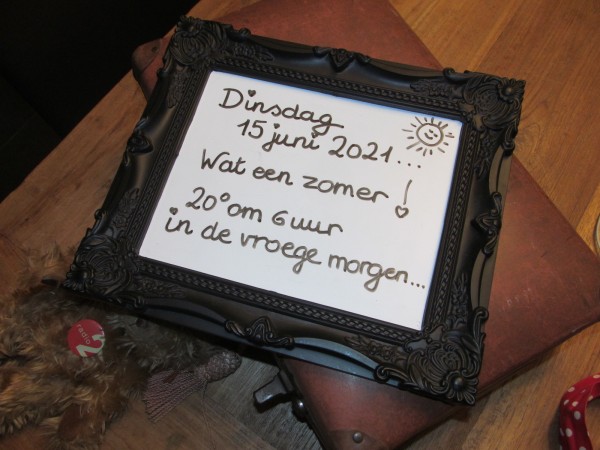 Dinsdag
15 juni 2021...
Wat een zomer!
20° om 6 uur
in de vroege morgen...
radio
2